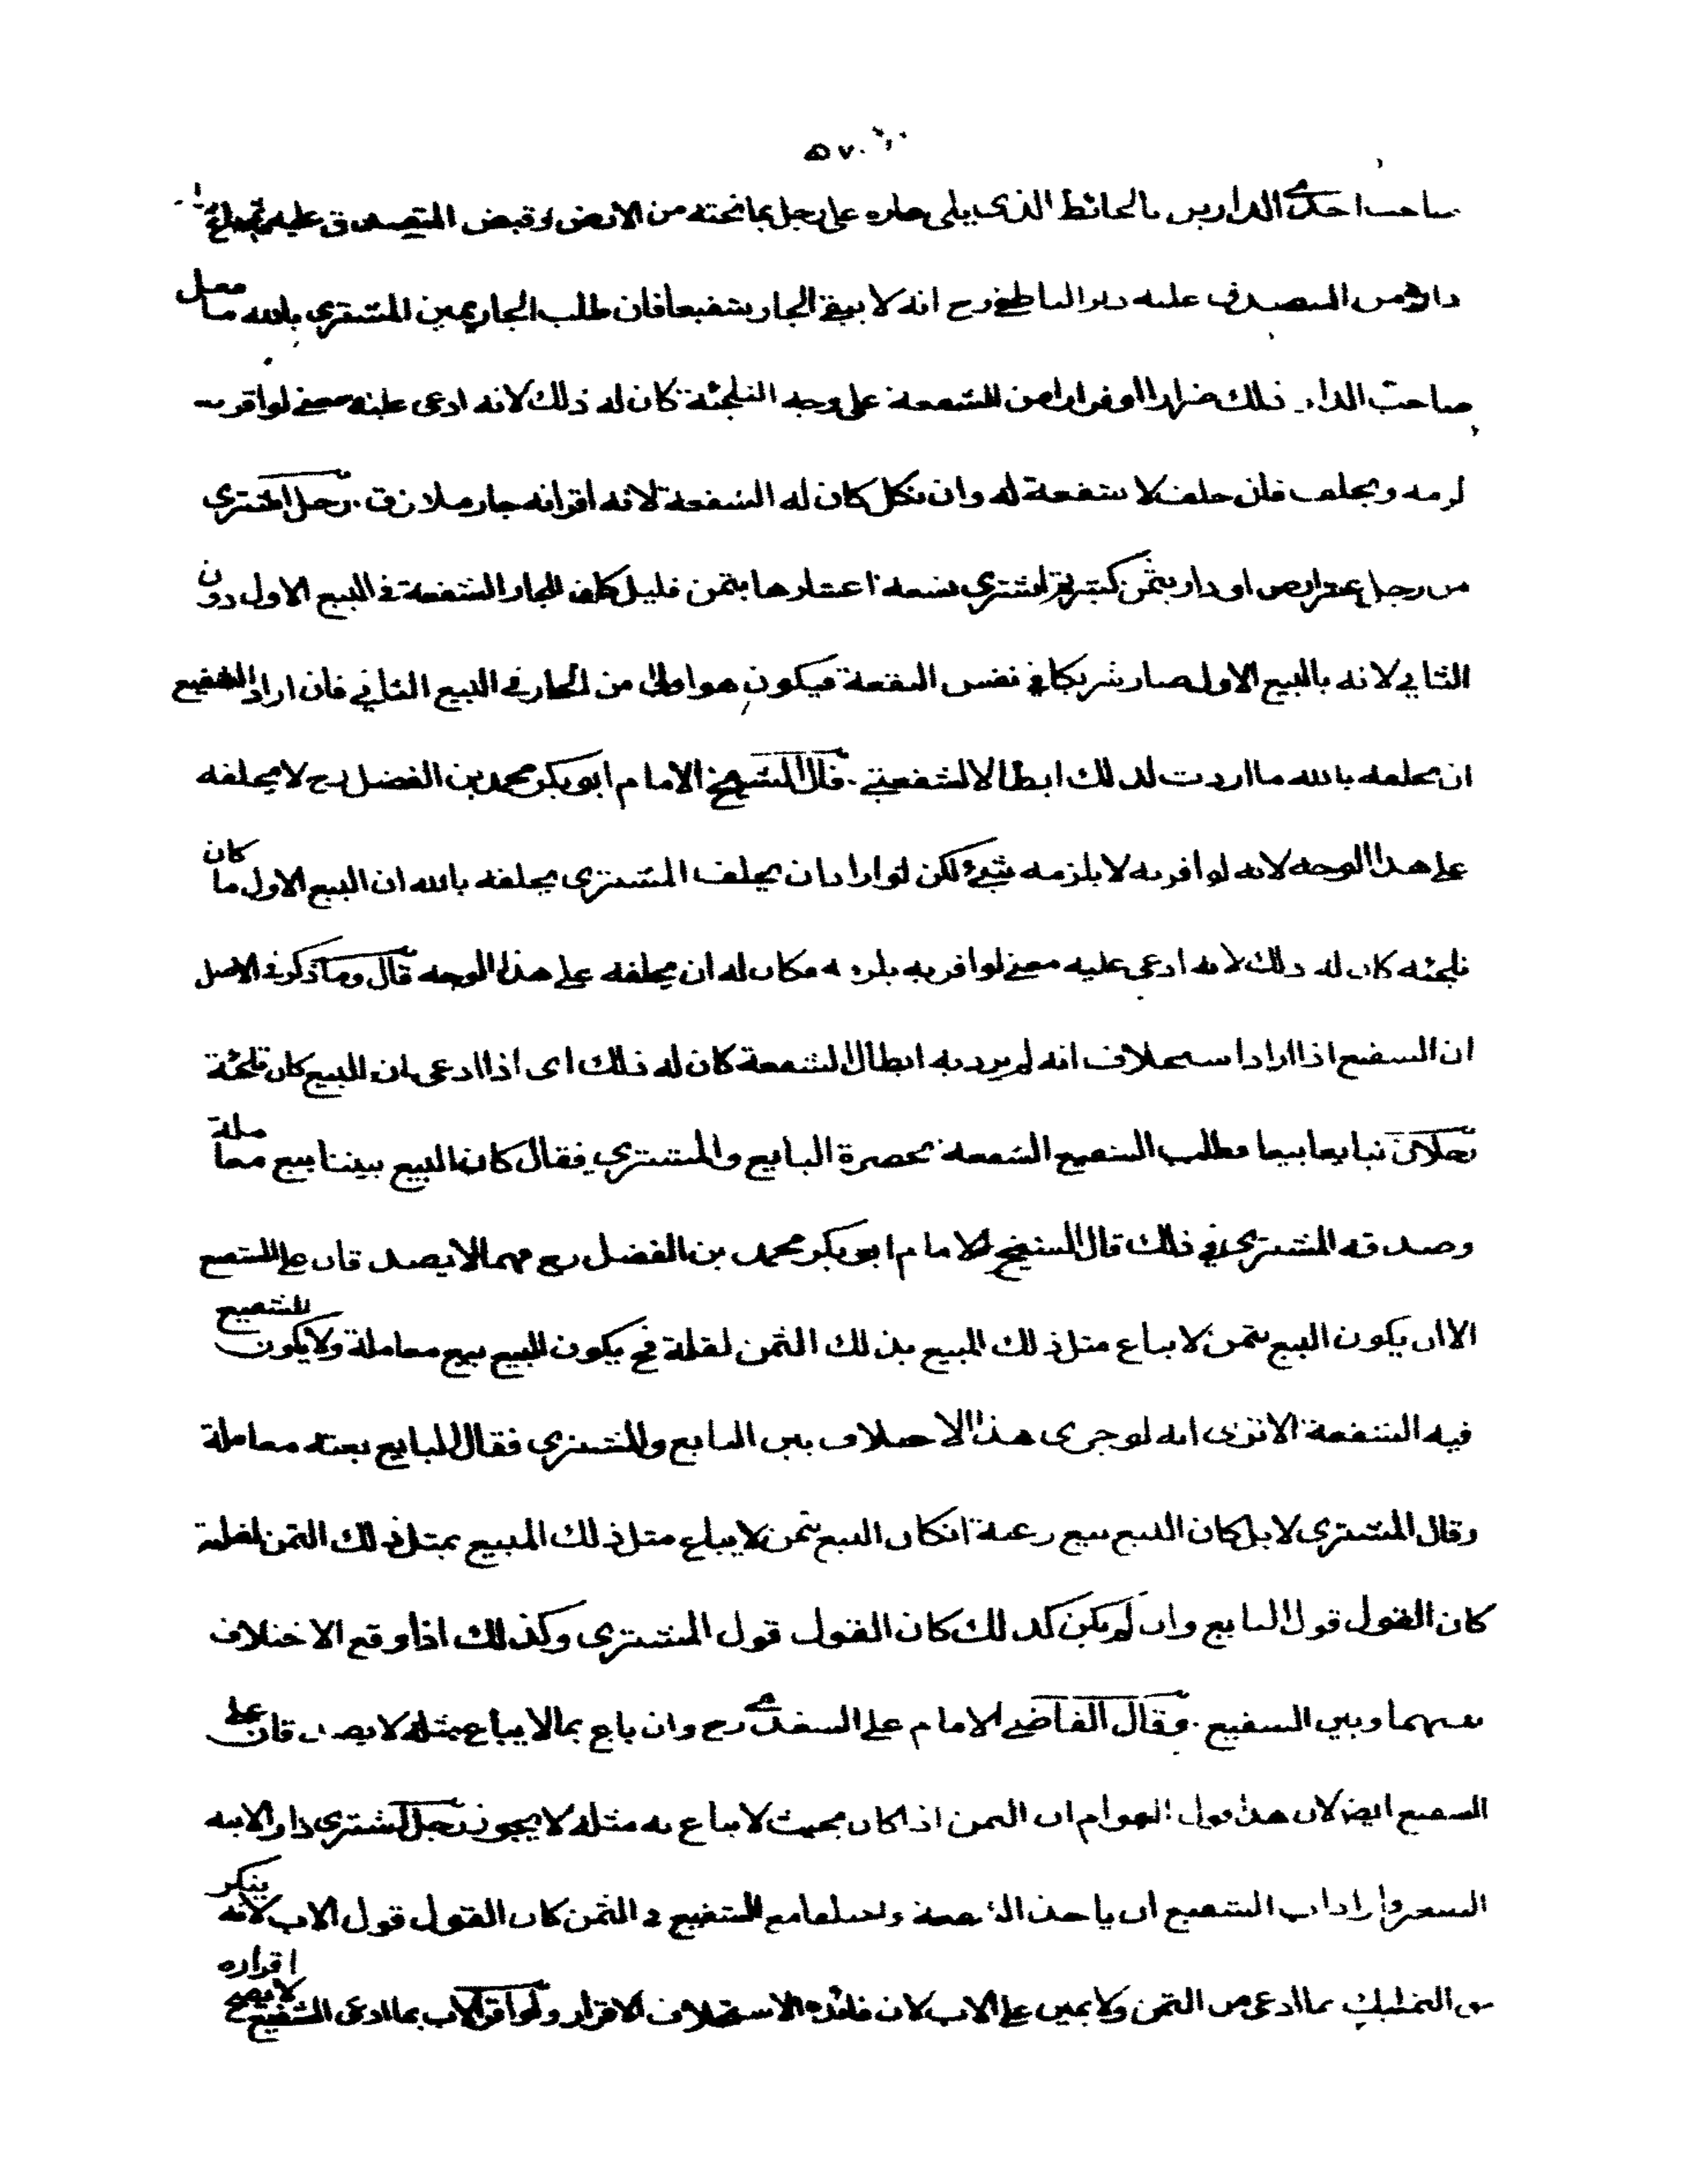 ٥٧٠
صاحب احدى الدارين بالحائط الذى يلى جاره على رجل بما تحته من الارض وقبض المتصدق عليه ثم باع
داره من المتصدق عليه ذكر الناطفى رح انه لا يبقى الجار شفيعا فان طلب الجار يمين المشترى بالله ما فعل
صاحب الدار ذلك ضرارا او فرارا من الشفعة على وجه التلجئة كان له ذلك لانه ادعى عليه معنى لو اقر به
لزمه ويحلف فان حلف لا شفعة له وان نكل كان له الشفعة لانه اقر انه جار ملازق . رجل اشترى
من رجل عشر ارض او دار بثمن كثير ثم اشترى تسعة اعشارها بثمن قليل كان للجار الشفعة فى البيع الاول دون
الثانى لانه بالبيع الاول صار شريكا فى نفس البقعة فيكون هو اولى من الجار فى البيع الثانى فان اراد الشفيع
ان يحلفه بالله ما اردت بذلك ابطالا لشفعتى . قال الشيخ الامام ابو بكر محمد بن الفضل رح لا يحلفه
على هذا الوجه لانه لو اقر به لا يلزمه شئ لكن لو اراد ان يحلف المشترى يحلفه بالله ان البيع الاول ما كان
تلجئه كان له ذلك لانه ادعى عليه معنى لو اقر به يلزمه فكان له ان يحلفه على هذا الوجه قال وما ذكر فى الاصل
ان الشفيع اذا اراد استحلاف انه لم يرد به ابطال الشفعة كان له ذلك اى اذا ادعى ان البيع كان تلجئة
رجلان تبايعا بيعا فطلب الشفيع الشفعة بحضرة البايع والمشترى فقال كان البيع بيننا بيع معاملة
وصدقه المشترى فى ذلك قال الشيخ الامام ابو بكر محمد بن الفضل رح فهما لا يصدقان على الشفيع
الا ان يكون البيع بثمن لا يباع مثل ذلك المبيع بذلك الثمن لقلة فح يكون البيع بيع معاملة ولا يكون للشفيع
فيه الشفعة الا ترى انه لو جرى هذا الاختلاف بين البايع والمشترى فقال البايع بعته معاملة
وقال المشترى لا بل كان البيع بيع رغبة ان كان البيع بثمن لا يباع مثل ذلك المبيع بمثل ذلك الثمن لقلة
كان القول قول البايع وان لم يكن كذلك كان القول قول المشترى وكذلك اذا وقع الاختلاف
بينهما وبين الشفيع . وقال القاضى الامام على السغدى رح وان باع بما لا يباع بمثله لا يصدقان على
الشفيع ايضا لان هذا قول العوام ان الثمن اذا كان بحيث لا يباع به مثله لا يجوز رجل اشترى دارا لابنه
الصغير واراد اب الشفيع ان ياخذ الشفعة واختلفا مع الشفيع فى الثمن كان القول قول الاب لانه ينكر
حق التمليك بما ادعى من الثمن ولا يمين على الاب لان فائدة الاستحلاف الاقرار ولو اقر الاب بما ادعى الشفيع لا يصح اقراره